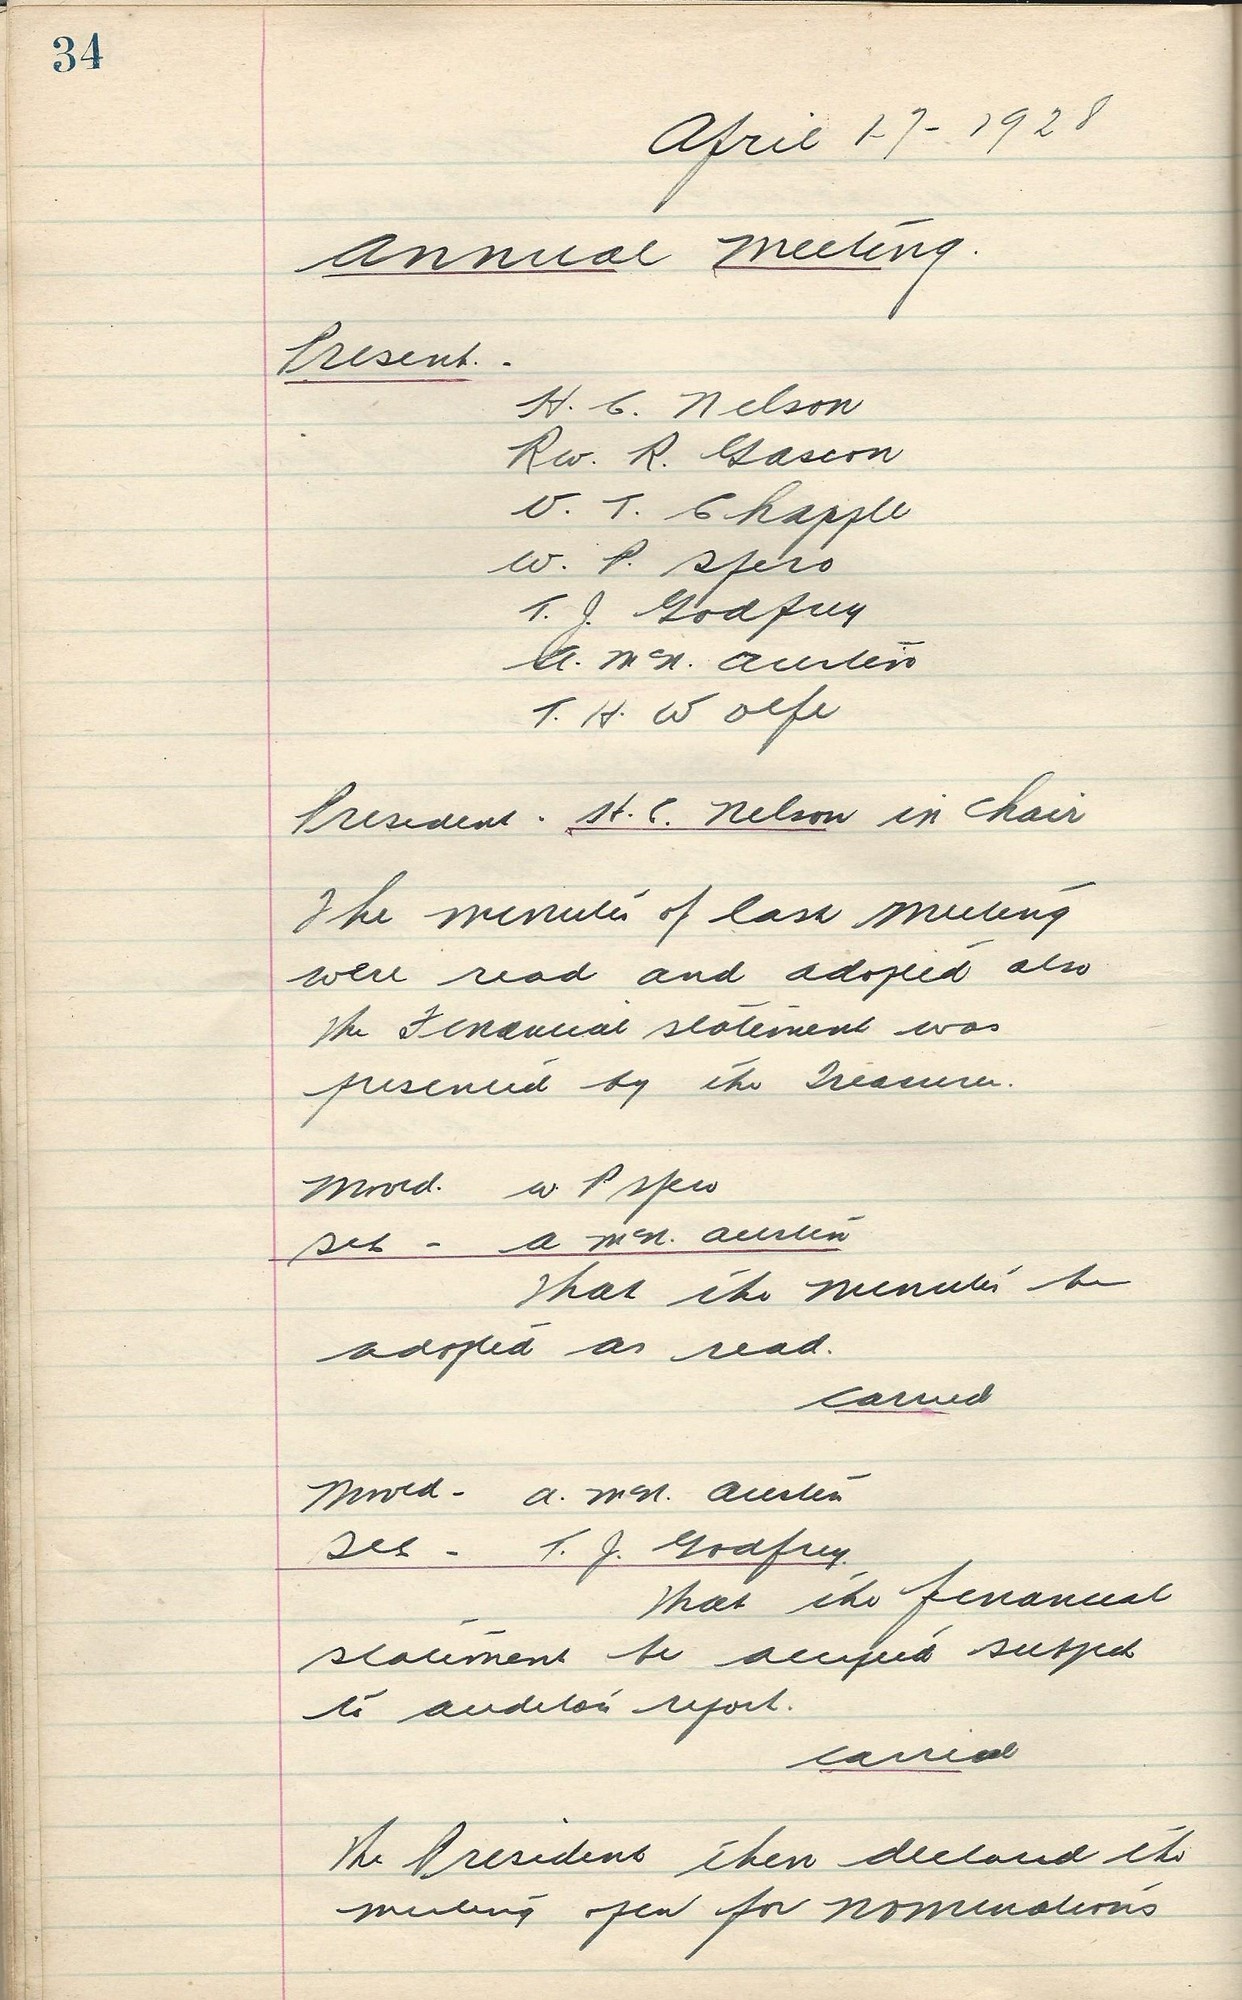 34
April 17 - 1928
Annual Meeting.
Present. -
H. C. Nelson
R. Gascon
V. T. Chapple
W. P. Spero
T. J. Godfrey
A. McN. Austin
T. H. Wolfe
President - H. C. Nelson in Chair
The minutes of last meeting
were read and adopted also
the Financial statement was
presented by the Treasurer.
Moved. W. P Spero
Sec - A McN. Austin
That the minutes be
adopted as read.
carried
Moved - A. McN. Austin
Sec - T. J. Godfrey.
That the financial
statement be accepted subject
to auditors report.
carried
The President then declared the
meeting open for nominations